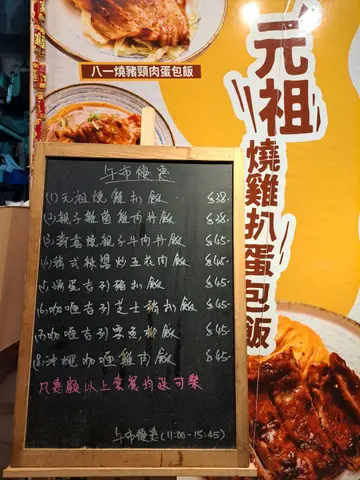 八一燒豬頸肉蛋包飯
元祖
燒雞扒蛋包飯
午市優惠
(1)元祖燒雞扒飯 $38.
(2)親子雞菌雞肉丼飯 $38.
(3)壽喜燒親子牛肉丼飯 $45.
(4)韓式辣醬炒五花肉飯 $45.
(5)滑蛋吉列豬扒飯 $45.
(6)咖喱吉列芝士豬扒飯 $45.
(7)咖喱吉列 魚柳飯 $45.
(8) 咖喱雞肉飯 $45.
凡惠顧以上套餐均送可樂
午市優惠(11:00-15:45)